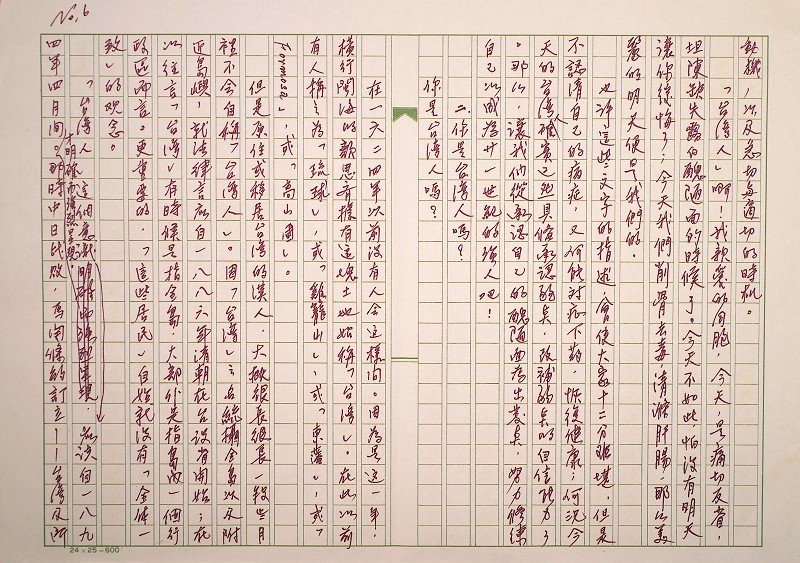 No.6
契機,以及急切與適切的時机。
「台湾人」啊!我親爱的同胞,今天,是痛切反省,
坦陳缺失露白醜陋面的時候了。今天不如此,怕没有明天
讓你後悔了;今天我們削骨去毒清滌肝腸,那么美
麗的明天便是我們的。
也許這些文字的描述會使大家十二分难堪,但是
不認清自己的病症,又何能对症下药,恢復健康;何况今
天的台湾人確實已然具俻承認弱点,改補弱点的自信能力了
。那么,讓我們從承認自己的醜陋面為出発点,努力修練
自己以成為廿一世紀的強人吧!
二、你是台湾人嗎?
你是台湾人嗎?
在一六二四年以前没有人会這樣问。因為是這一年,
橫行閩海的顏思齊據有這塊土地始稱「台湾」。在此以前
有人稱之為「琉球」,或「雞籠山」,或「東蕃」,或「
Formosa」,或「高山国」。
但是原住或移居台湾的漢人,大概很長很長一段岁月
裡不会自稱「台湾人」。因「台湾」之名総攝全島以及附
近島嶼,就法律言应自一八八六年清朝在台設省開始;在
以往言「台湾」有時候是指全島,大部分是指島内一個行
政區而言。更重要的,「這些居民」自始就没有「全体一
致」的观念。
「台湾人」這個意識明確而強烈呈現,应該自一八九
四年四月间。那時中日比敗,馬関條約訂立——台湾及所
24×25=600